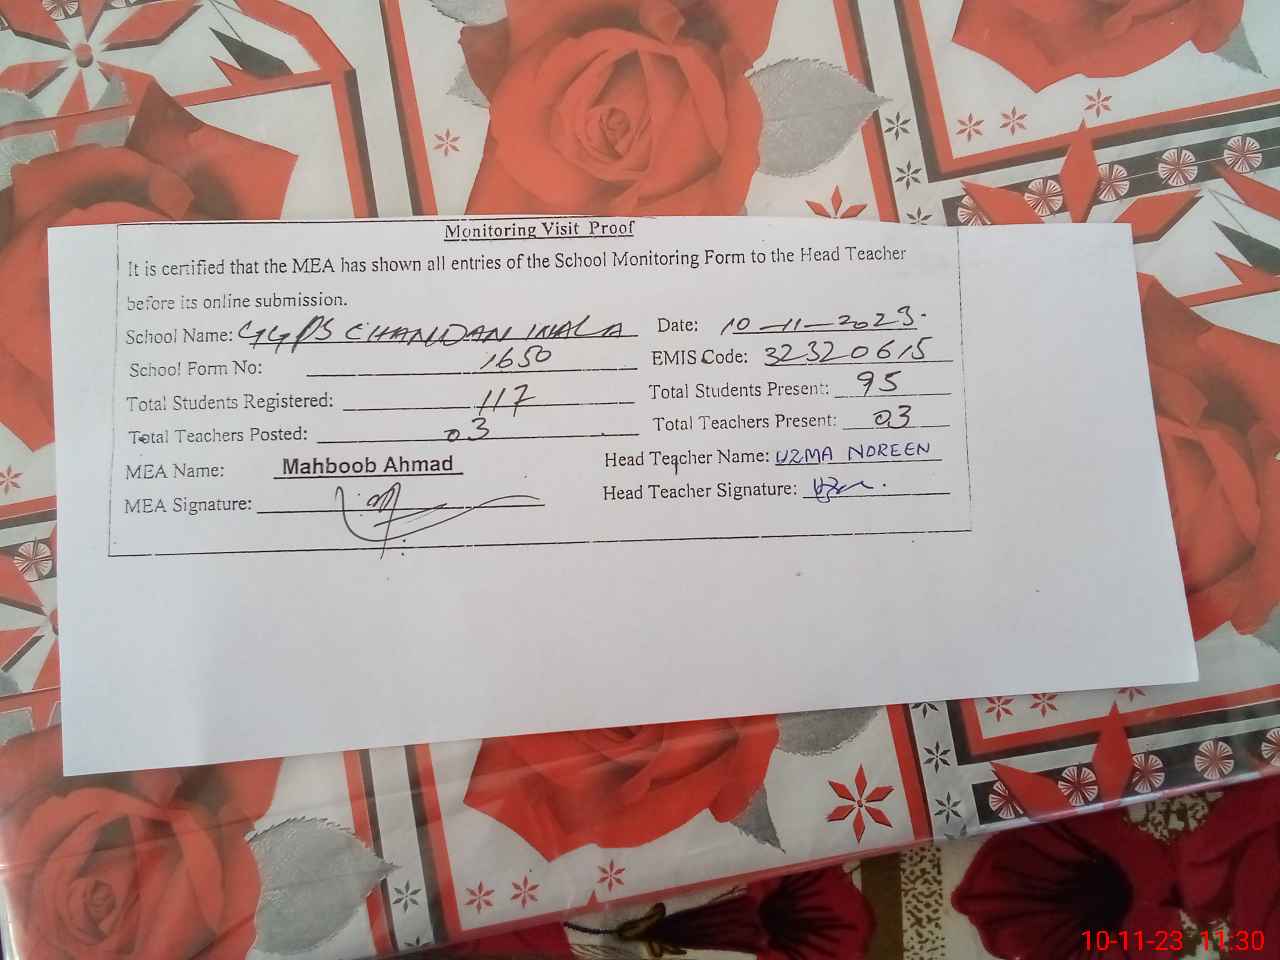 Monitoring Visit Proof
It is certified that the MEA has shown all entries of the School Monitoring Form to the Head Teacher
before its online submission.
School Name: GGPS CHANDAN WALA Date: 10-11-2023.
School Form No: 1650 EMIS Code: 32320615
Total Students Registered: 117 Total Students Present: 95
Total Teachers Posted: 03 Total Teachers Present: 03
MEA Name: Mahboob Ahmad Head Teacher Name: UZMA NOREEN
MEA Signature: Head Teacher Signature:
10-11-23 11:30